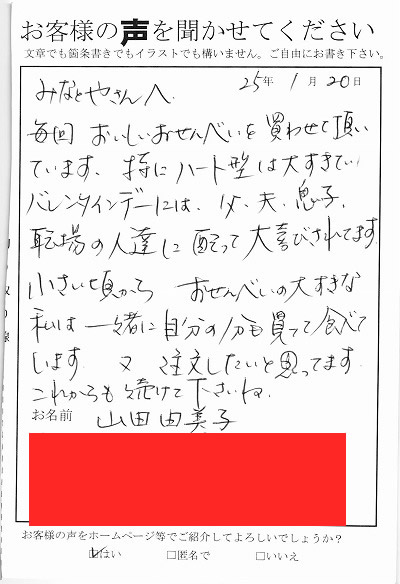 お客様の声を聞かせてください
文章でも箇条書きでもイラストでも構いません。ご自由にお書き下さい。
25年 1月 20日
みなとやさんへ
毎回 おいしいおせんべいを買わせて頂い
ています。特にハート型は大すきで、
バレンタインデーには、父、夫、息子、
職場の人達に配って大喜びされてます。
小さい頃から おせんべいの大すきな
私は一緒に自分の分も買って食べて
います。又 注文したいと思ってます。
これからも続けて下さいね。
お名前 山田由美子
お客様の声をホームページ等でご紹介してよろしいでしょうか？
☑はい □匿名で □いいえ